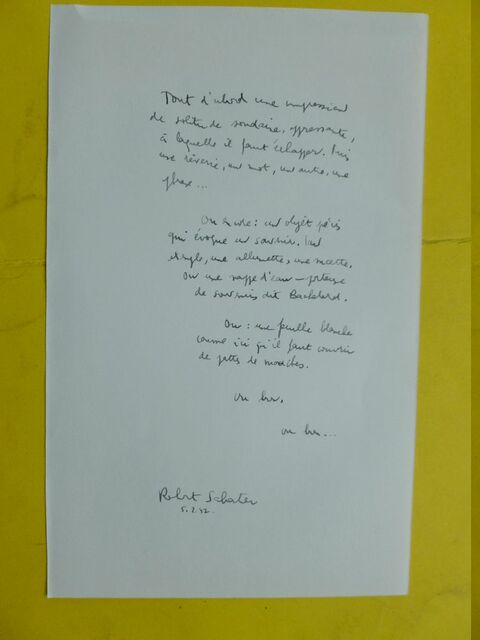 Tout d'abord une impression
de solitude soudaine, oppressante,
à laquelle il faut échapper. Puis
une rêverie, un mot, un autre, une
phrase...
Ou encore : un objet précis
qui évoque un souvenir. Par
exemple, une allumette, une
ou une nappe d'eau — porteuse
de souvenirs dit Bachelard.
Ou : une feuille blanche
comme ici qu'il faut couvrir
de pattes de mouches.
ou bien,
ou bien...
Robert Sabatier
5.2.92.